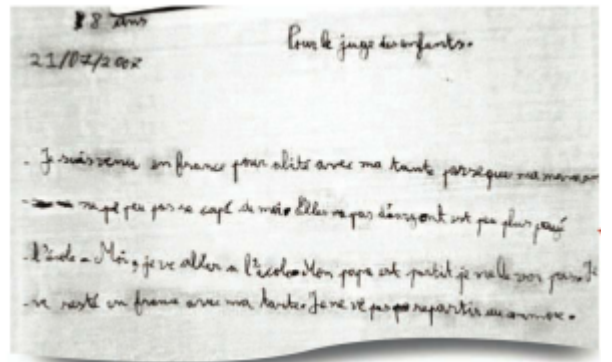 8 ans
Pour le juge des enfants.
21/07/200
- Je suis venu en france pour abité avec ma tante parseque ma maman
ne pe peu pas ocupé de moi. Elle na pas d'argent est peu plus payé
l'école - Moi, je ve aller a l'école. Mon papa est partit je ne le voi pas. Je
ve resté en france avec ma tante. Je ne vé pas repartir au